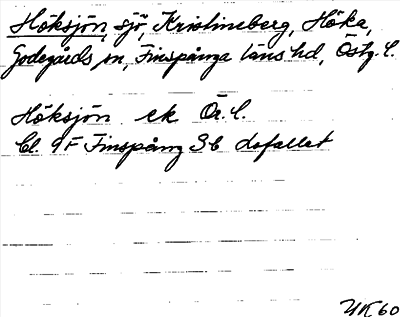 Höksjön, sjö, Kristineberg, Höka,
Godegårds sn, Finspånga läns hd, Östg. l.
Höksjön ek Ör. l.
Bl. 9F Finspång 3b dofallet
YK 60